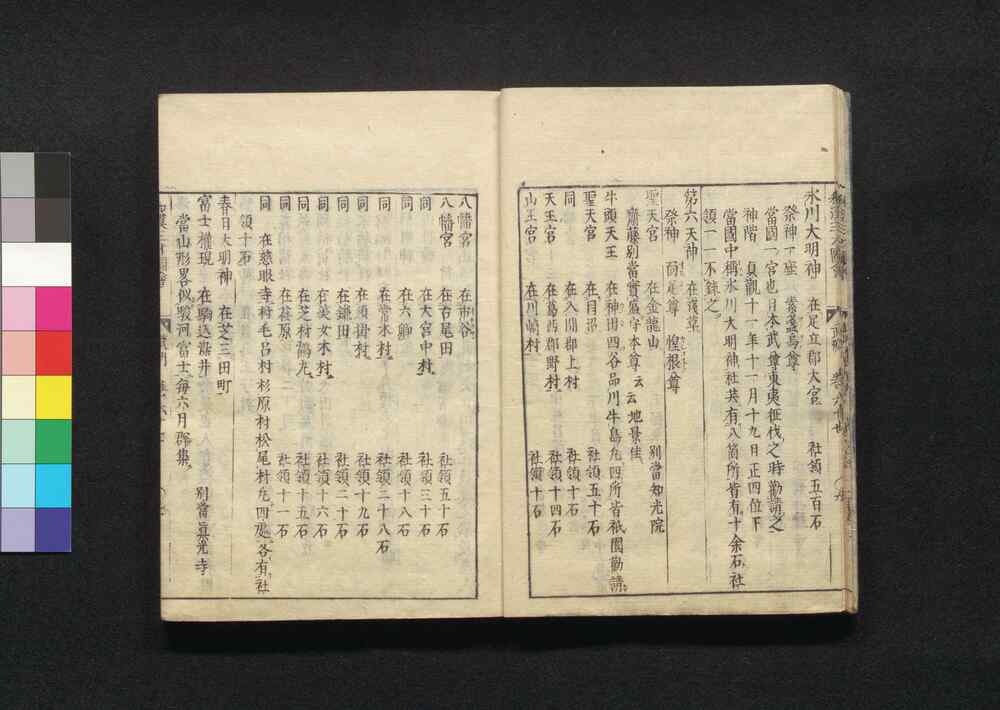 氷川大明神 在足立郡大宮 社領五百石
祭神一座 素盞烏尊
當國一宮也日本武尊東夷征伐之時勸請之
神階 貞觀十一年十一月十九日正四位下
當國中稱氷川大明神社共有八箇所皆有十余石社
領一一不錄之
第六天神 在淺草
祭神 面足尊 惶根尊
聖天宮 在金龍山 別當知光院
齋藤別當實盛守本尊云云地景佳
牛頭天王 在神田四谷品川牛島凢四所皆祇園勸請
聖天宮 在目沼 社領五十石
同 在入間郡上村 社領十石
天王宮 在葛西郡野村 社領十四石
山王宮 在川崎村 社領十石
八幡宮 在市谷
八幡宮 在古尾田 社領五十石
同 在大宮中村 社領三十石
同 在六鄉 社領十八石
同 在常水村 社領二十八石
同 在須賀村 社領十九石
同 在美女木村 社領十六石
同 在鎌田 社領二十石
同 在芝村鶴凢 社領十五石
同 在蕨原 社領十一石
同 在慈眼寺村毛呂村杉原村松尾村凢四處各有社
領十石
春日大明神 在芝三田町
富士權現 在駒込 別當眞光寺
當山形畧似駿河富士每六月群集